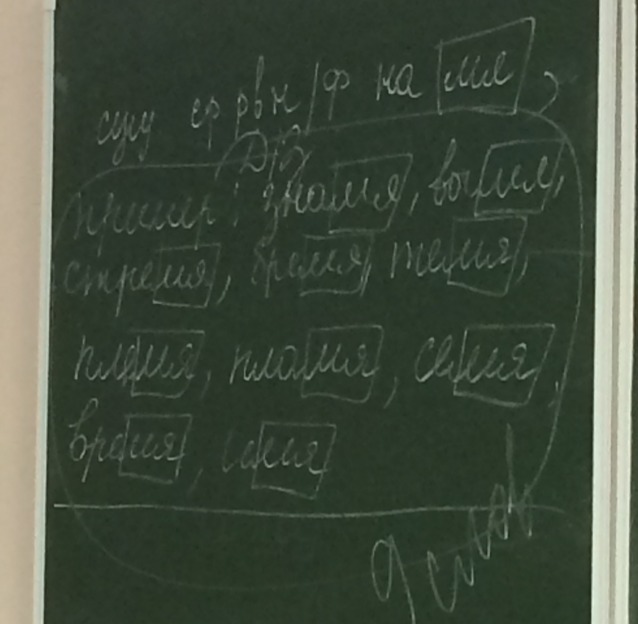 сущ ср рвн/ф на мя
Д/З
пример: знамя, вымя,
стремя, бремя, темя,
племя, пламя, семя,
время, имя
9 слов